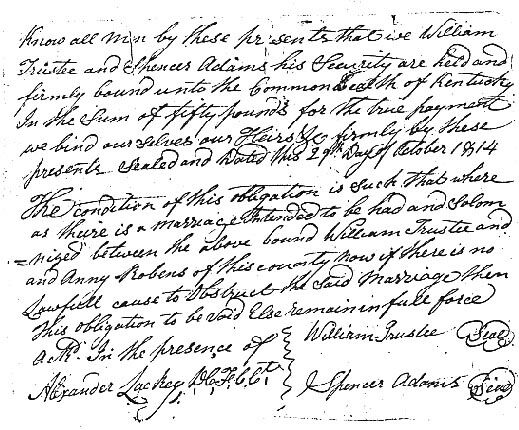 Know all men by these presents that we William
Trustee and Spencer Adams his Security are held and
firmly bound unto the Commonwealth of Kentucky
In the Sum of fifty pounds for the true payment
we bind ourselves our Heirs &c firmly by these
presents Sealed and Dated this 29th Day of October 1814
The condition of this obligation is such that where
as there is a marriage Intended to be had and Solom
=nized between the above bound William Trustee and
and Anny Robens of this county now if there is no
Lawfull cause to Obstruct the said Marriage then
this obligation to be void Else remain in full force
In the presence of William Trustee Seal
Alexander Lackey Spencer Adams Seal